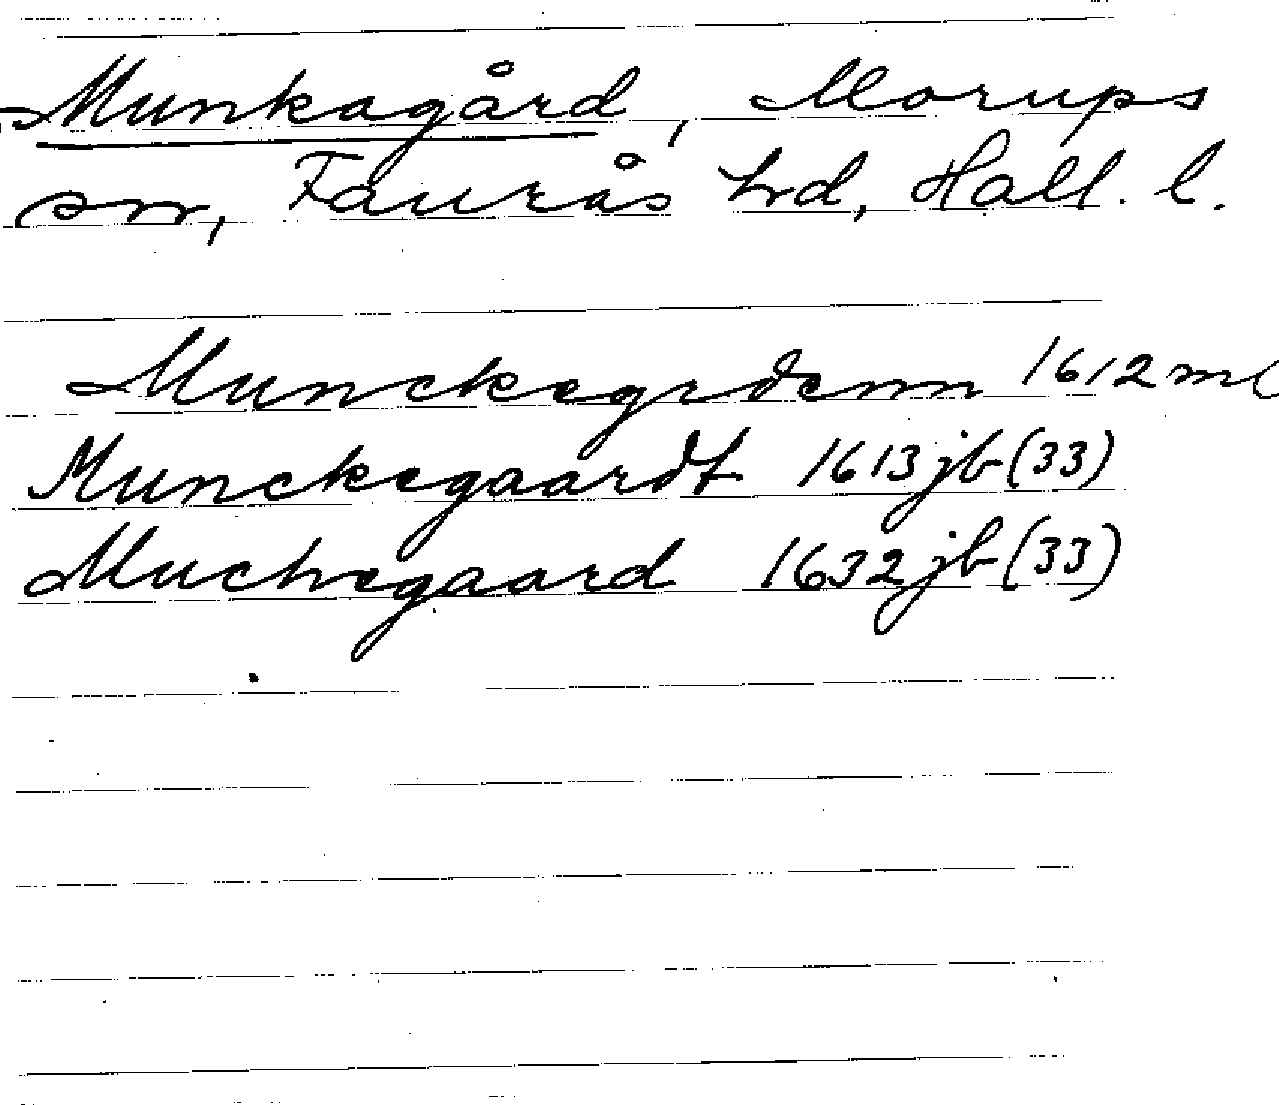 Munkagård, Morups
sn, Faurås hd, Hall. l.
Munckegrdenn 1612 ml
Munckegaardt 1613 jb (33)
Muchegaard 1632 jb (33)